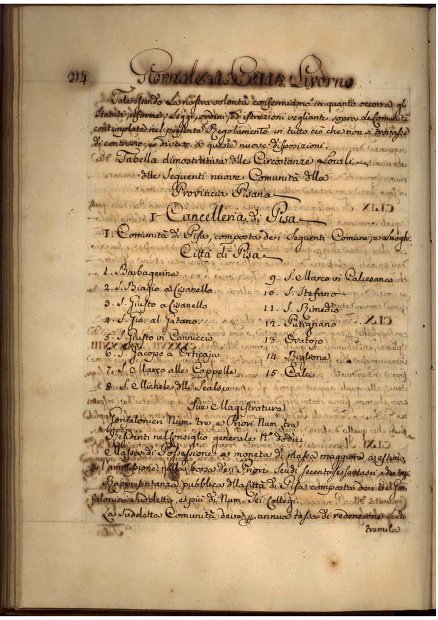 214 Giornale di Città Livorno
Tale essendo La nostra volontà confermiamo in quanto occorra gli
Statuti, riforme, Leggi, ordini, ed istruzioni veglianti sopra le Comunità
contemplate nel presente Regolamento in tutto ciò che non si trovasse
di contrario, e diverso da queste nuove disposizioni.
Tabella dimostrativa delle Circostanze Locali
delle Seguenti nuove Comunità della
Provincia Pisana
I Cancelleria di Pisa
I. Comunità di Pisa, composta dei Seguenti Comuni, e Luoghi
Città di Pisa
1. Barbaregina
2. S. Biagio a Cisanello
3. S. Giusto a Cisanello
4. S. Gio. al Gatano
5. S. Giusto in Cannicci
6. S. Jacopo a Orticaja
7. S. Marco alle Cappelle
8. S. Michele delli Scalzi
9. S. Marco in Calcesana
10. S. Stefano
11. S. Rimedio
12. Putignano
13. Oratojo
14. Riglione
15. Calci
Sue Magistrature
Gonfalonieri Num. tre, e Priori Num. tre
Residenti nel Consiglio generale N.° dodici
Massa di Possessione a moneta di massa maggiore, o estimo
l'ammissione nella borsa dei Priori Scudi
Rappresentanza pubblica della Città di Pisa composta
Suddetto, e più di Num. Sei Collegi
La Suddetta Comunità deve annua tassa di redenzione
tremila